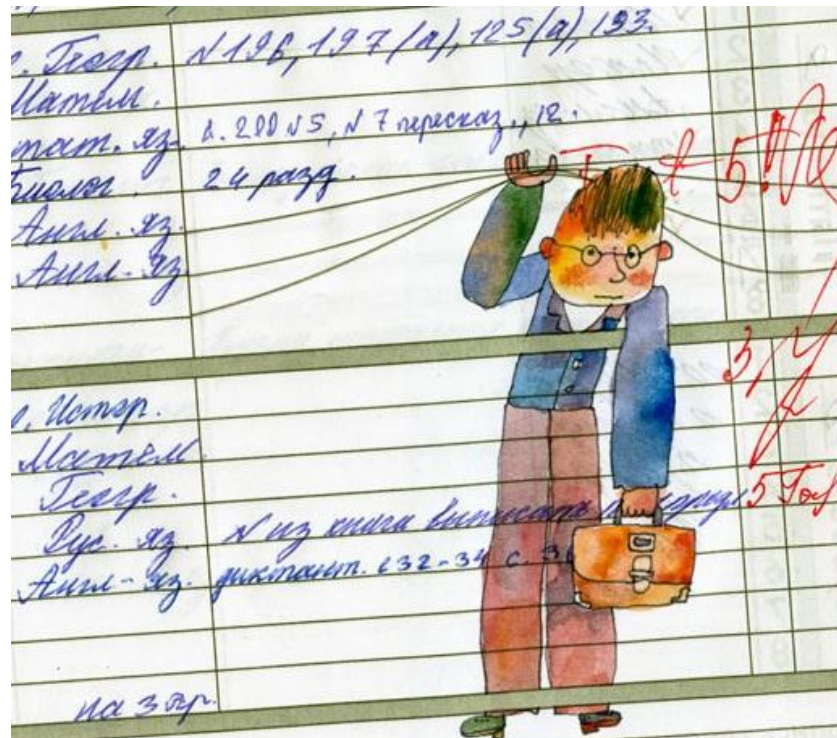 Геогр. N 196, 197 (а), 125 (а), 193.
Матем.
тат. яз. с. 200 N 5, N 7 пересказ., 12.
Биолог. 24 разд.
Англ. яз.
Англ. яз.
5!
3/
Истор.
Матем.
Геогр. 5
Рус. яз. N из книги выписать
Англ-яз. диктант. с32-34 с. 3
на 3 гр.